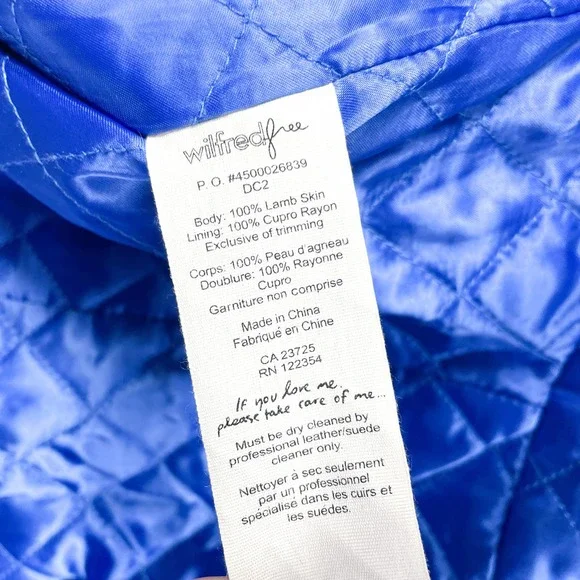 wilfred free
P.O. #4500026839
DC2
Body: 100% Lamb Skin
Lining: 100% Cupro Rayon
Exclusive of trimming
Corps: 100% Peau d'agneau
Doublure: 100% Rayonne
Cupro
Garniture non comprise
Made in China
Fabriqué en Chine
CA 23725
RN 122354
If you love me,
please take care of me...
Must be dry cleaned by
professional leather/suede
cleaner only.
Nettoyer à sec seulement
par un professionnel
spécialisé dans les cuirs et
les suédes.